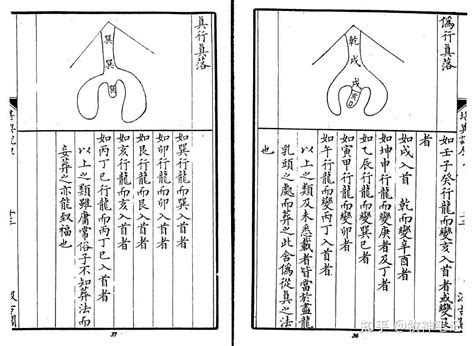 偽行偽落
乾
戌
戌
如壬子癸行龍而變亥入首者或變艮
者
如戌入首 乾而變辛酉者
如坤申行龍而變庚者及丁者
如乙辰行龍而變巽巳者
如寅甲行龍而變卯者
如午行龍而變丙丁者
以上之類及未悉載者皆當於盡龍
乳頭之處而葬之此舍偽從真之法
也
36
真行真落
巽
巽
巽
如巽行龍而巽入首者
如卯行龍而卯入首者
如艮行龍而艮入首者
如亥行龍而亥入首者
如丙丁巳行龍而丙丁巳入首者
以上之類雖庸常俗子不知葬法而
妄葬之亦能致福也
37
知乎